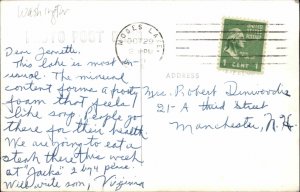 Washington
PHOTO POST
MOSES LAKE
OCT 29
PM
1 CENT 1
ADDRESS
Dear Jennette.
This lake is most un-
usual. The mineral
content forms a
foam that feels
like soap. People go
there for their health.
We are going to eat a
steak there this week
at "Jacks"
Will write soon,
Virginia
Mrs. Robert Dinwoodie
21-A Third Street
Manchester, N.H.